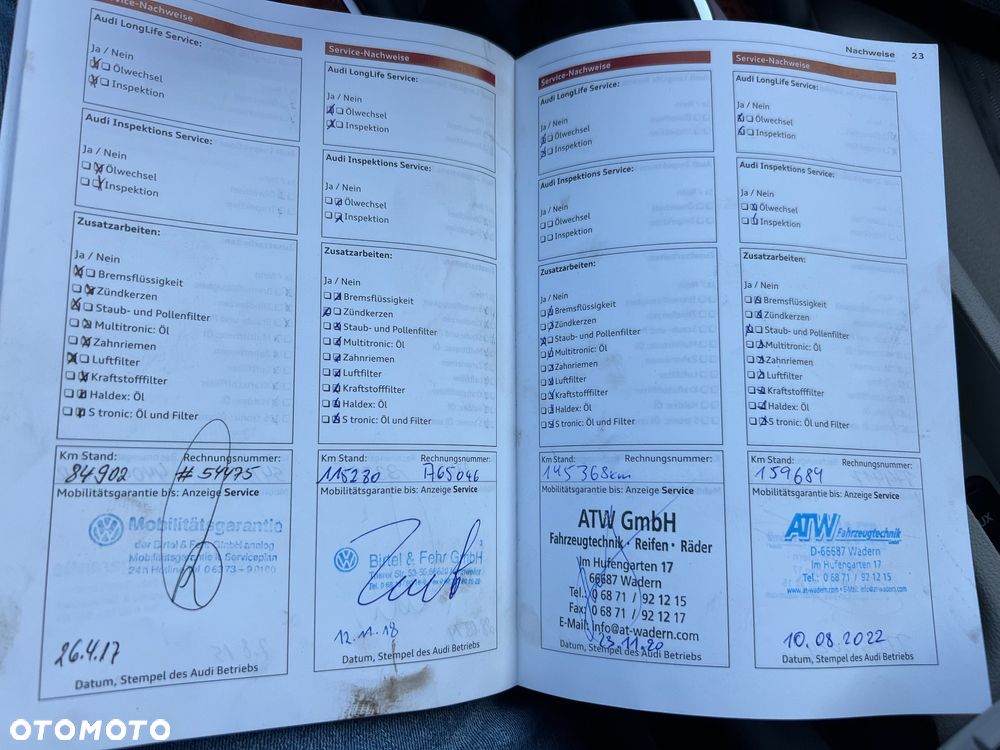 Service-Nachweise
Audi LongLife Service:
Ja / Nein
Ölwechsel
Inspektion
Audi Inspektions Service:
Ja / Nein
Ölwechsel
Inspektion
Zusatzarbeiten:
Ja / Nein
Bremsflüssigkeit
Zündkerzen
Staub- und Pollenfilter
Multitronic: Öl
Zahnriemen
Luftfilter
Kraftstofffilter
Haldex: Öl
S tronic: Öl und Filter
Km Stand: Rechnungsnummer:
84902 #54475
Mobilitätsgarantie bis: Anzeige Service
Mobilitätsgarantie
der Birtel & Fehr GmbH analog
Mobilitätsgarantie lt. Serviceplan
26.4.17
Datum, Stempel des Audi Betriebs
Service-Nachweise
Audi LongLife Service:
Ja / Nein
Ölwechsel
Inspektion
Audi Inspektions Service:
Ja / Nein
Ölwechsel
Inspektion
Zusatzarbeiten:
Ja / Nein
Bremsflüssigkeit
Zündkerzen
Staub- und Pollenfilter
Multitronic: Öl
Zahnriemen
Luftfilter
Kraftstofffilter
Haldex: Öl
S tronic: Öl und Filter
Km Stand: Rechnungsnummer:
115230 A65046
Mobilitätsgarantie bis: Anzeige Service
Birtel & Fehr GmbH
12.11.18
Datum, Stempel des Audi Betriebs
Nachweise 23
Service-Nachweise
Audi LongLife Service:
Ja / Nein
Ölwechsel
Inspektion
Audi Inspektions Service:
Ja / Nein
Ölwechsel
Inspektion
Zusatzarbeiten:
Ja / Nein
Bremsflüssigkeit
Zündkerzen
Staub- und Pollenfilter
Multitronic: Öl
Zahnriemen
Luftfilter
Kraftstofffilter
Haldex: Öl
S tronic: Öl und Filter
Km Stand: Rechnungsnummer:
145368km
Mobilitätsgarantie bis: Anzeige Service
ATW GmbH
Fahrzeugtechnik • Reifen • Räder
Im Hufengarten 17
66687 Wadern
Tel.: 0 68 71 / 92 12 15
Fax: 0 68 71 / 92 12 17
E-Mail: info@at-wadern.com
23.11.20
Datum, Stempel des Audi Betriebs
Service-Nachweise
Audi LongLife Service:
Ja / Nein
Ölwechsel
Inspektion
Audi Inspektions Service:
Ja / Nein
Ölwechsel
Inspektion
Zusatzarbeiten:
Ja / Nein
Bremsflüssigkeit
Zündkerzen
Staub- und Pollenfilter
Multitronic: Öl
Zahnriemen
Luftfilter
Kraftstofffilter
Haldex: Öl
S tronic: Öl und Filter
Km Stand: Rechnungsnummer:
159684
Mobilitätsgarantie bis: Anzeige Service
ATW Fahrzeugtechnik
D-66687 Wadern
Im Hufengarten 17
Tel.: 0 68 71 / 92 12 15
www.at-wadern.com • E-Mail: info@at-wadern.com
10.08.2022
Datum, Stempel des Audi Betriebs
OTOMOTO